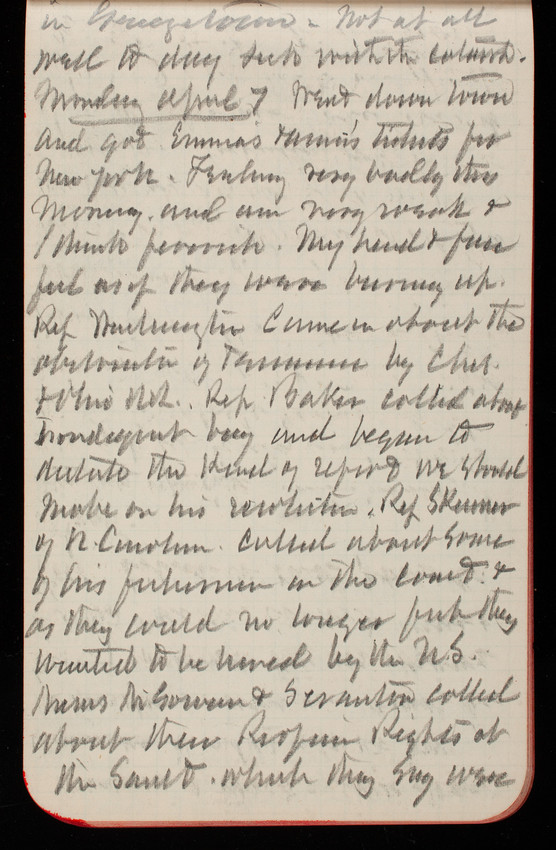 in Georgetown - Not at all
well to day sick with the catarrh.
Monday April 7 Went down town
and got Emma's & Annie's tickets for
New York. Feeling very badly this
Morning. and am very weak &
I think feverish. My head & face
feel as if they were burning up.
Rep Washington Came in about the
obstruction of Tennessee by Ches.
& Ohio RR.. Rep. Baker called about
Irondequoit bay and began to
dictate the kind of report we should
make on his resolution. Rep Skinner
of N. Carolina. called about some
of his fishermen on the coast. &
as they could no longer fish they
wanted to be hired by the U.S.
Messrs McGowan & Scranton called
about their Riparian Rights at
the Sault. which they say were